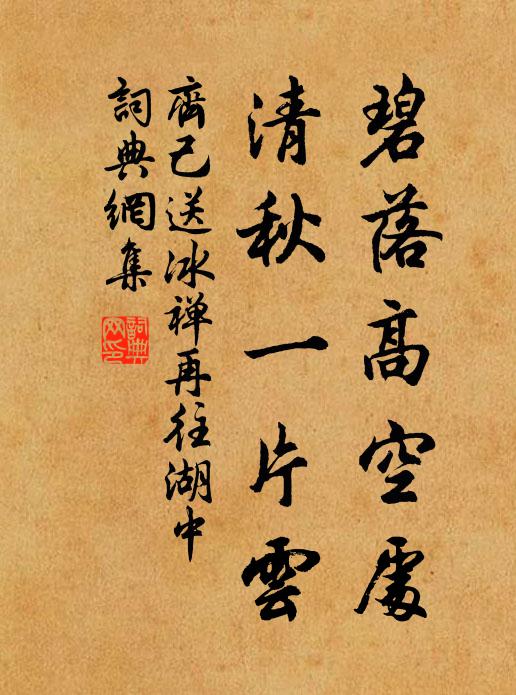 碧落高空處
清秋一片雲
齊己送冰禅再往湖中
詞典網集
詞典網印